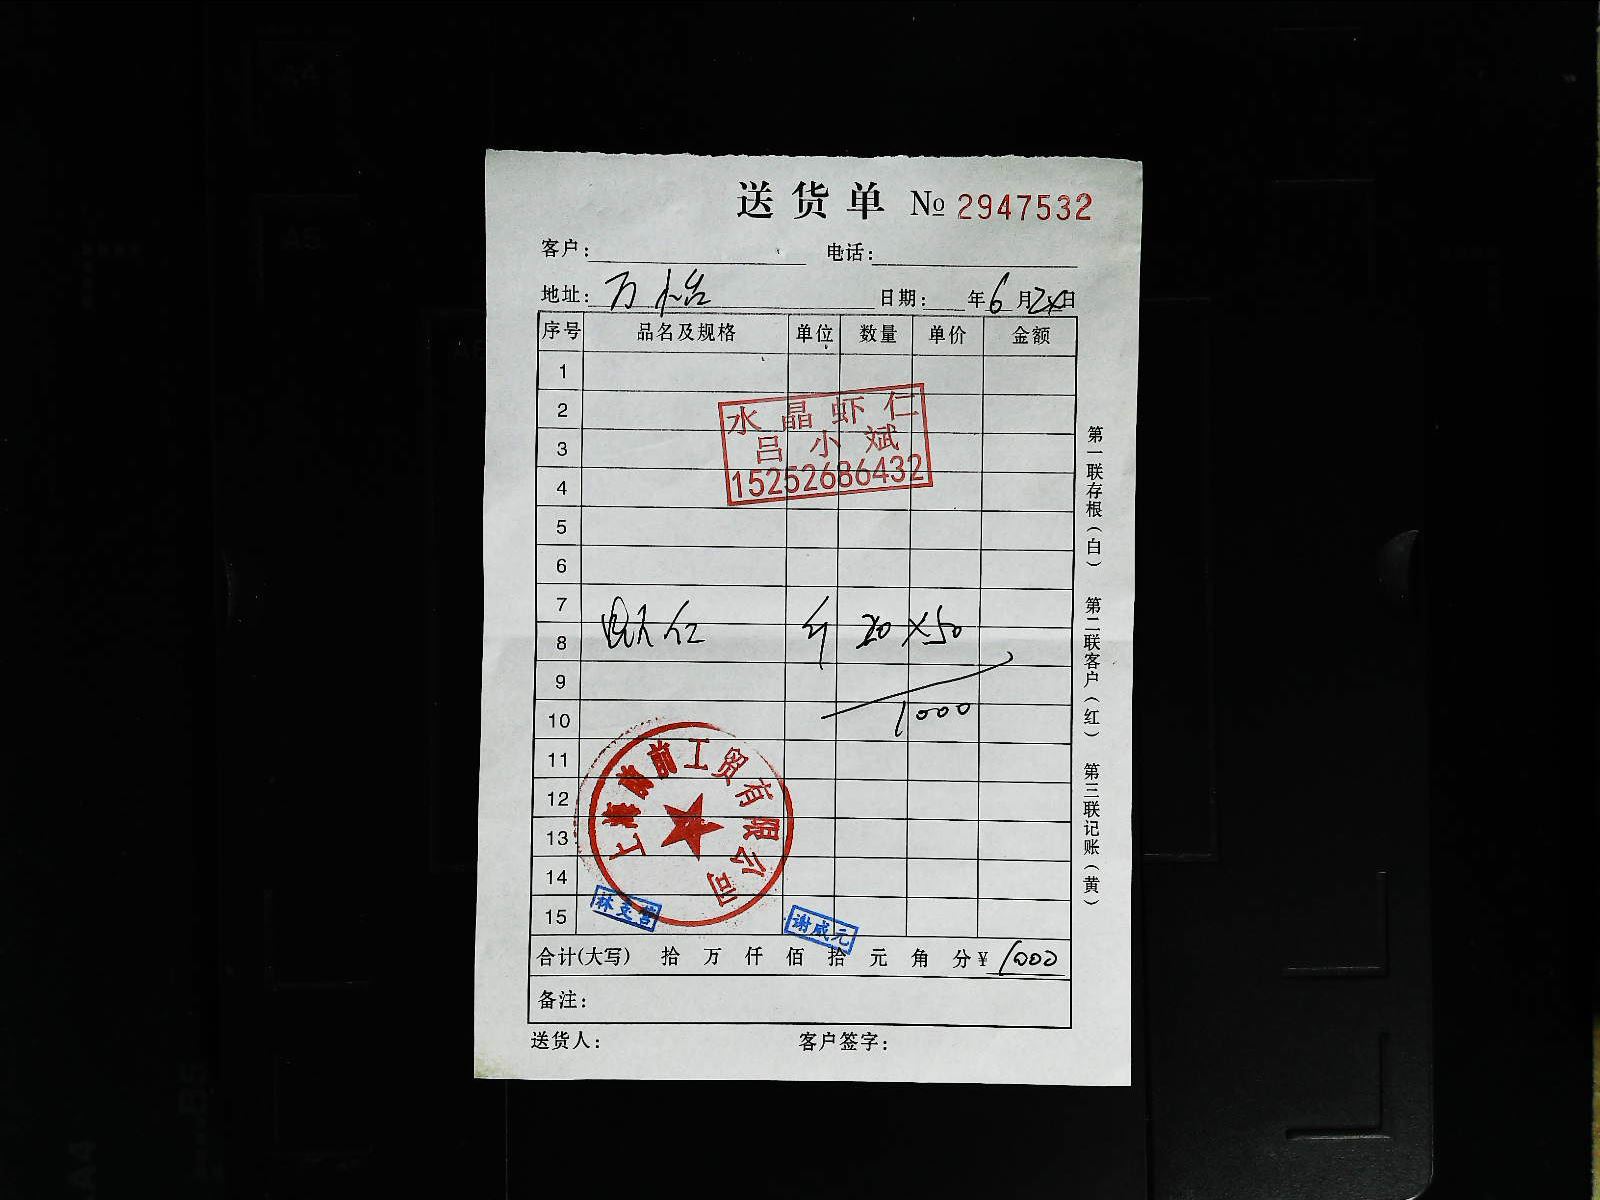 送货单 № 2947532
客户: 电话:
地址: 万怡 日期: 年6月24日
序号 品名及规格 单位 数量 单价 金额
1
2
水晶虾仁
3
吕小斌
4
15252686432
5
6
7
8 虾仁 斤 20 ×50
9
10 1000
11
12
13
14
15
上海前前工贸有限公司
谢咸元
合计(大写) 拾 万 仟 佰 拾 元 角 分 ¥ 1000
备注:
送货人: 客户签字:
第一联存根(白) 第二联客户(红) 第三联记账(黄)